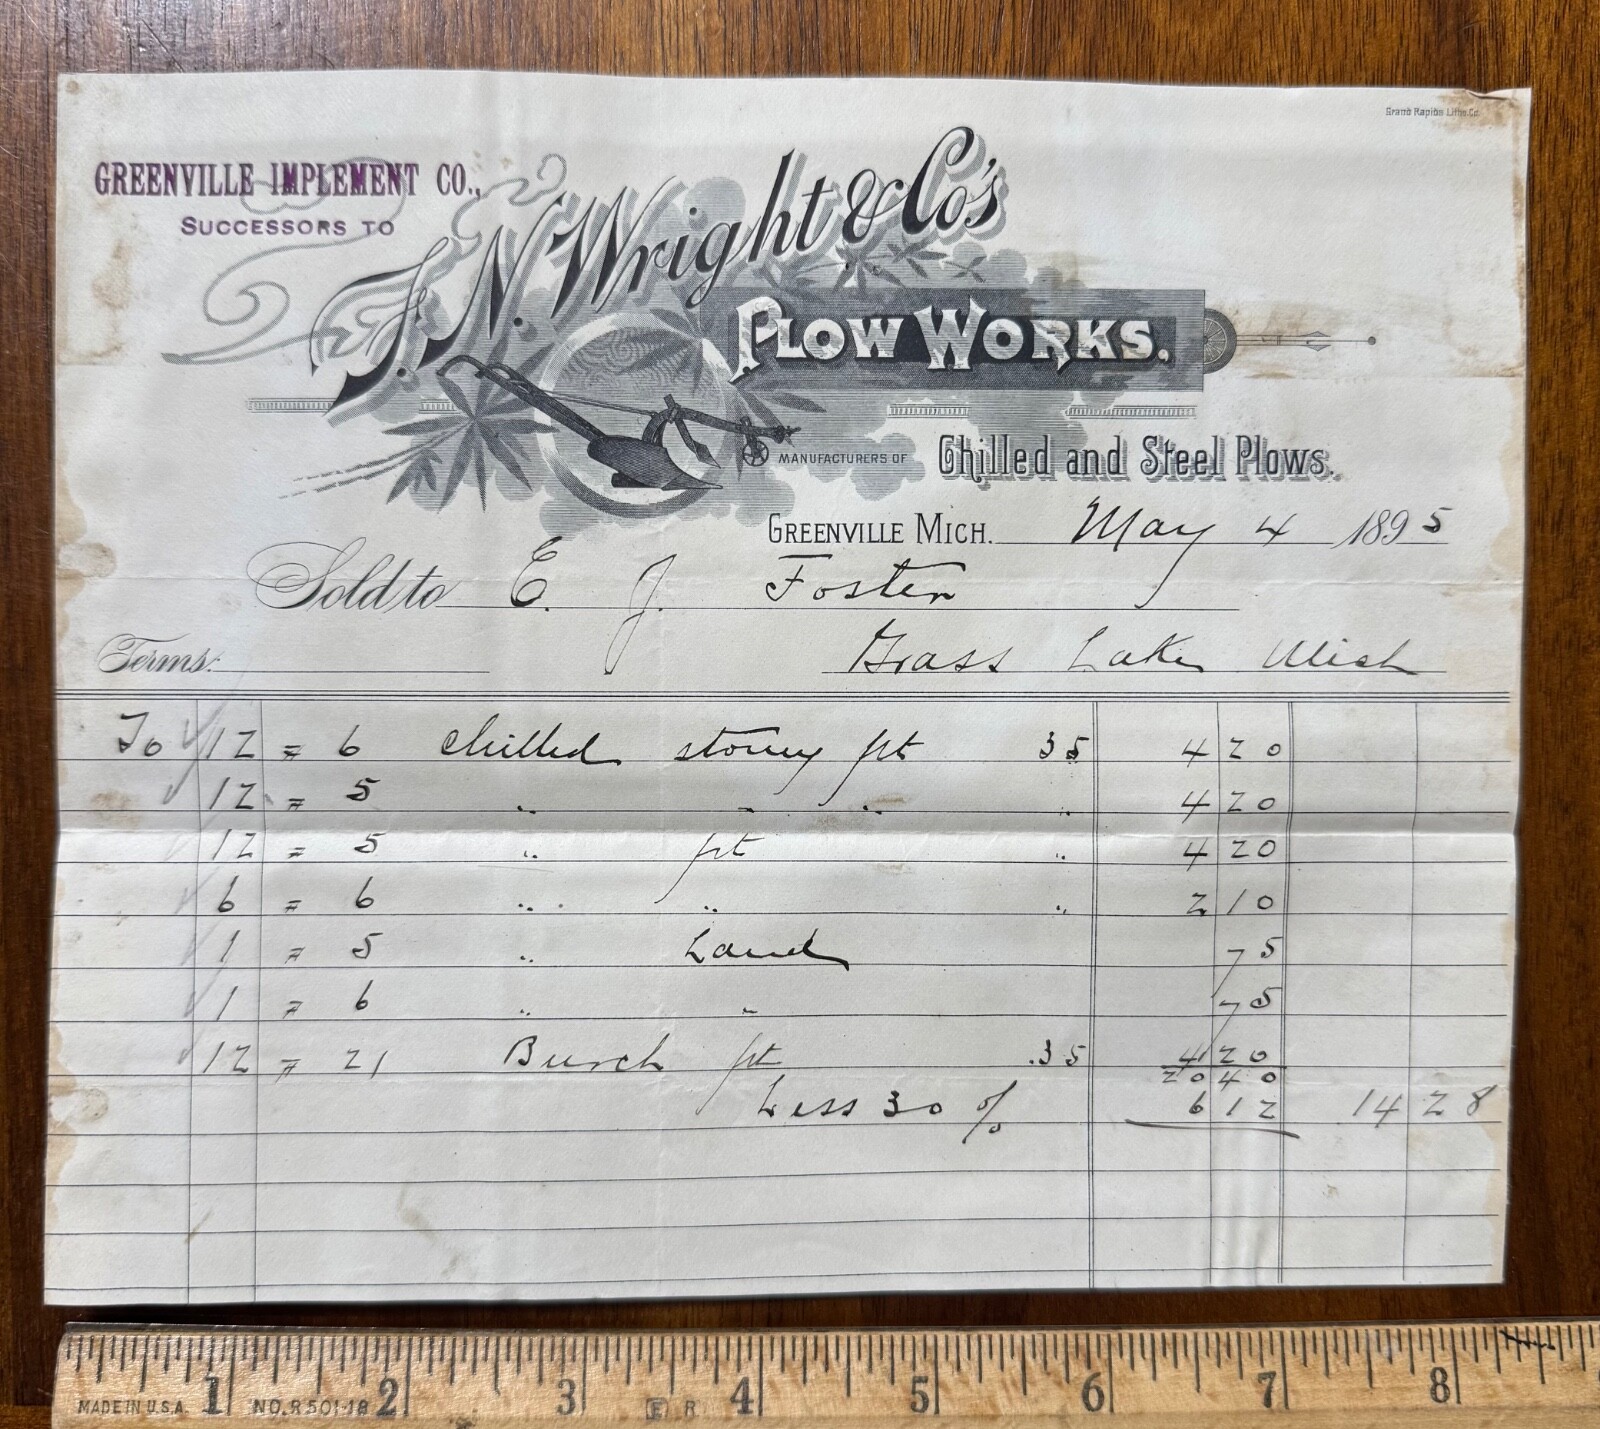 Grand Rapids Litho. Co.
GREENVILLE IMPLEMENT CO.,
SUCCESSORS TO
J. N. Wright & Co's
PLOW WORKS.
MANUFACTURERS OF Chilled and Steel Plows.
GREENVILLE MICH. May 4 1895
Sold to E. J. Foster
Terms: Grass Lake Mich
To 12 = 6 chilled stony pt 35 4 20
12 = 5 " " " " 4 20
12 = 5 " pt " 4 20
6 = 6 " " " 2 10
1 = 5 " Land 75
1 = 6 " " 75
12 = 21 Burch pt .35 4 20
20 40
Less 30 % 6 12 14 28
1 2 3 4 5 6 7 8
MADE IN U.S.A. NO. R501-18 E R